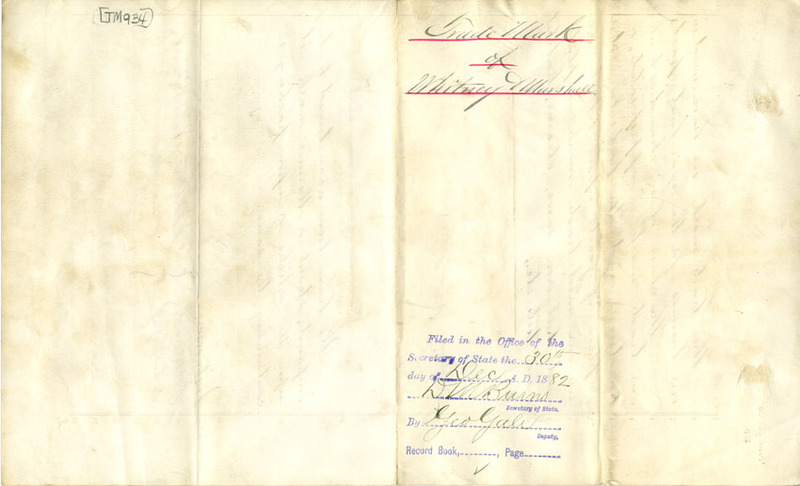 [TM934]
Trade Mark
of
Whitney & Marshall
Filed in the Office of the
Secretary of State the 30th
day of Dec A. D. 1882
D M Burns
Secretary of State.
By Geo
Deputy.
Record Book, Page